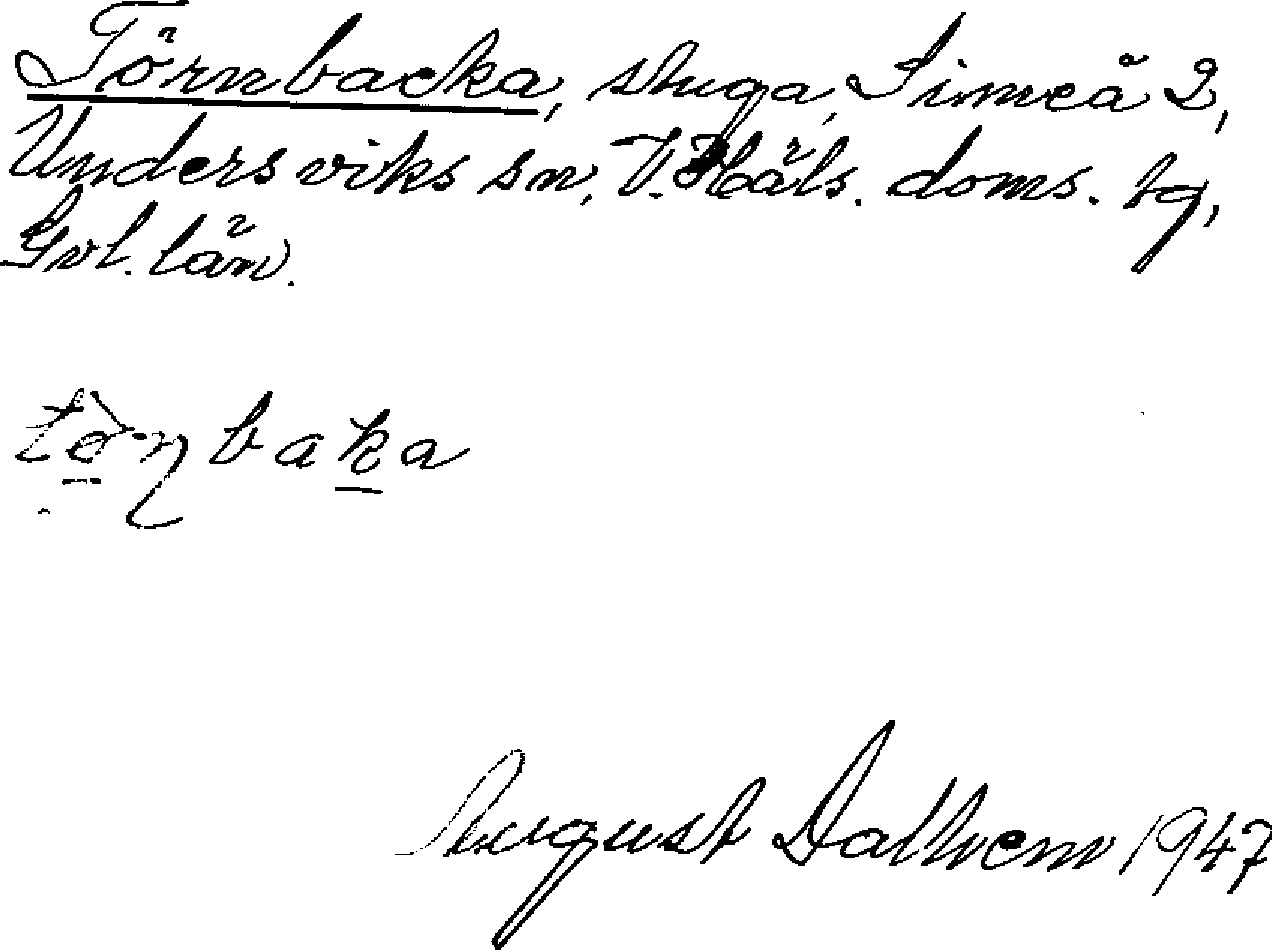 Törnbacka, stuga, Simeå 2,
Undersviks sn, V. Häls. doms. tg,
Gvl. län.
tò̱ɳbaḵa
August Dalhem 1947